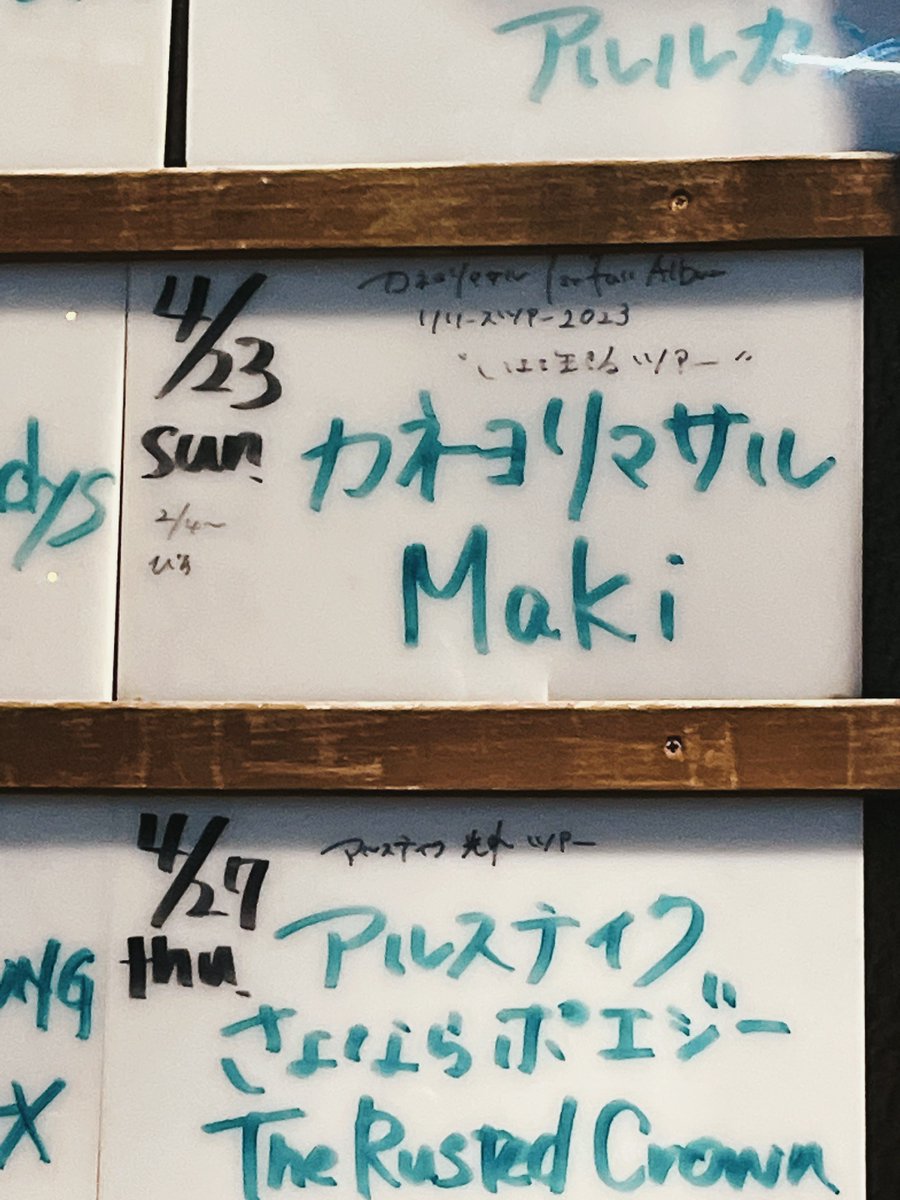 アルルカ
4/23
sun.
2/4〜
カネヨリマサル 1st full Album
リリースツアー2023
"いまを生きる ツアー"
カネヨリマサル
Maki
dys
4/27
thu.
アルステイク 光外 ツアー
アルステイク
さよならポエジー
The Rusted Crown
NG
X